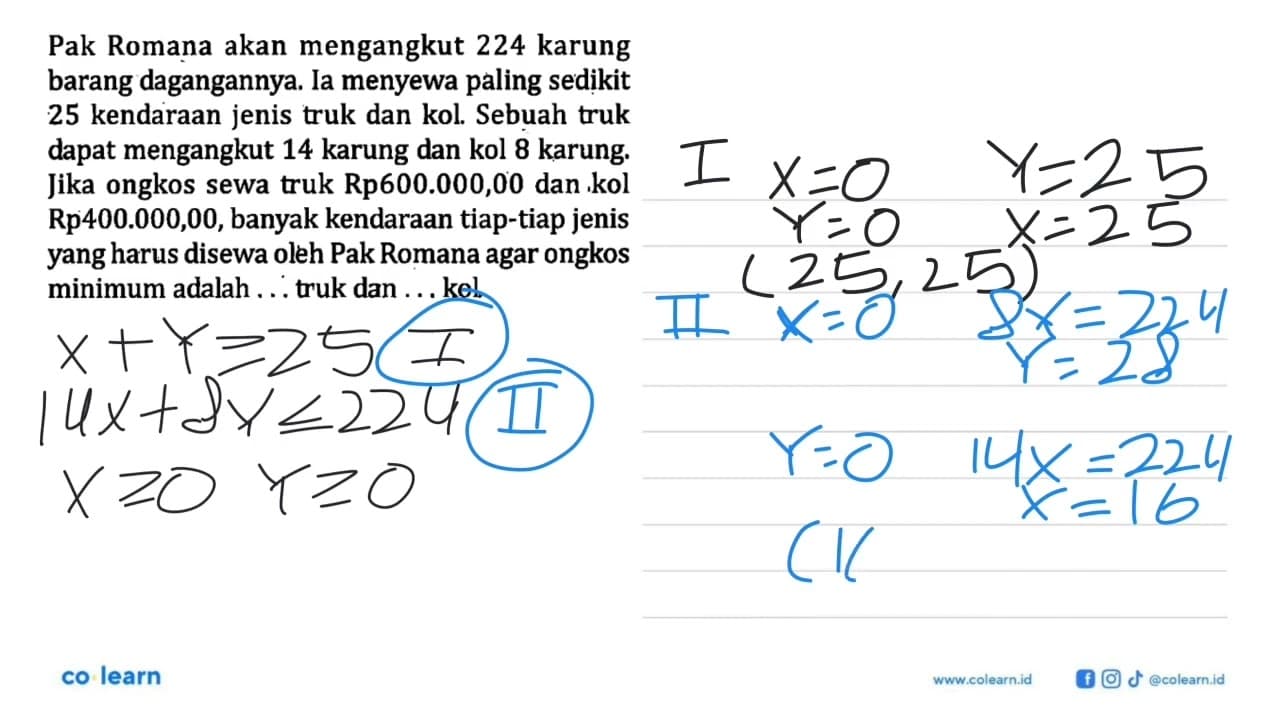 Pak Romana akan mengangkut 224 karung
barang dagangannya. Ia menyewa paling sedikit
25 kendaraan jenis truk dan kol. Sebuah truk
dapat mengangkut 14 karung dan kol 8 karung.
Jika ongkos sewa truk Rp600.000,00 dan kol
Rp400.000,00, banyak kendaraan tiap-tiap jenis
yang harus disewa oleh Pak Romana agar ongkos
minimum adalah ... truk dan ... kol.
X+Y≥25 I
14X+8Y≤224 II
X≥0 Y≥0
I X=0 Y=25
Y=0 X=25
(25,25)
II X=0 8Y=224
Y=28
Y=0 14X=224
X=16
(1
co learn
www.colearn.id
@colearn.id